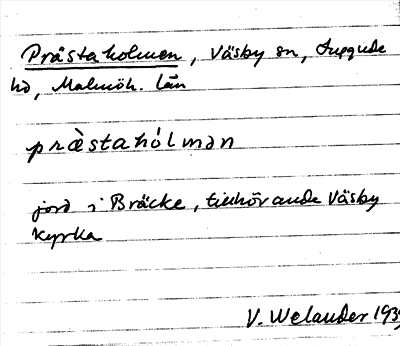 Prästaholmen, Väsby sn, Luggude
hd, Malmöh. län
præ̀stahólmən
jord i Bräcke, tillhörande Väsby
Kyrka
V. Welander 193